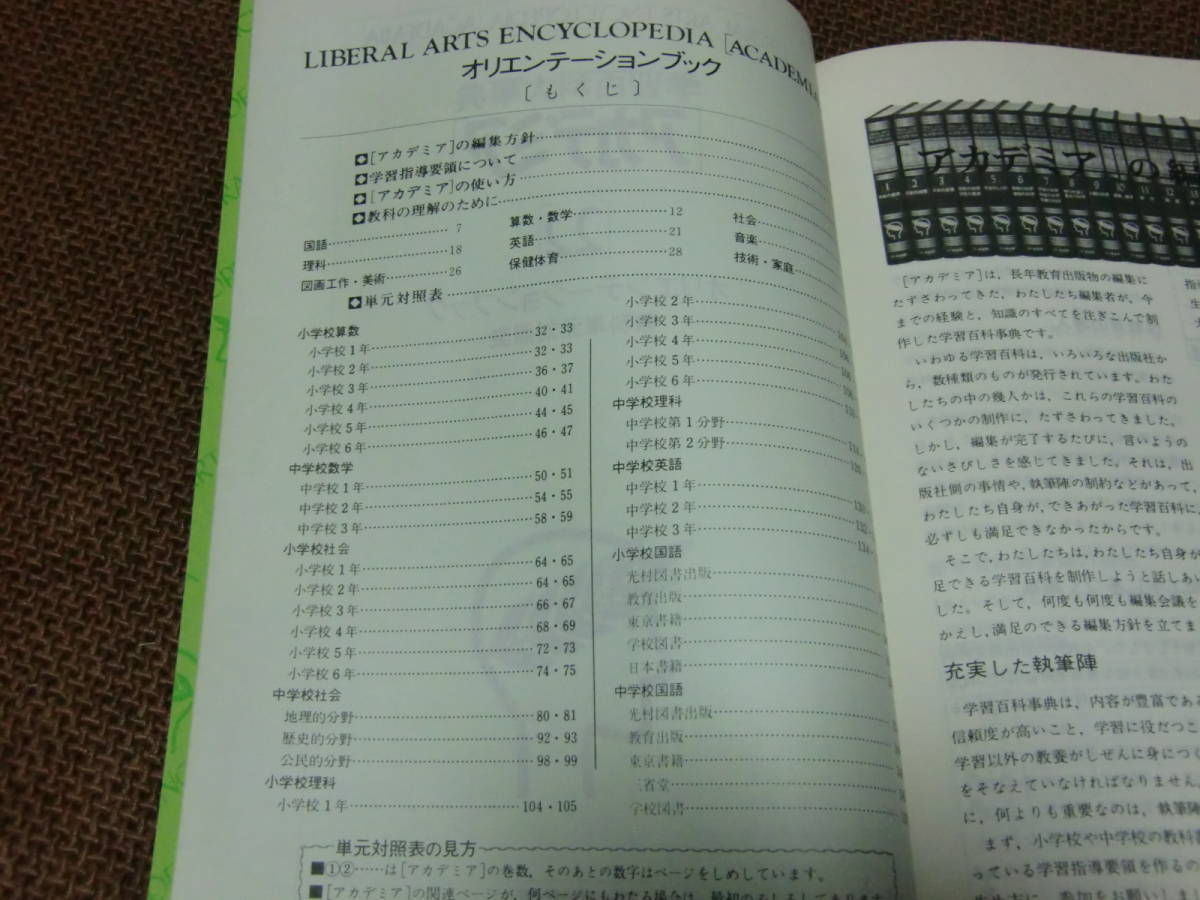 LIBERAL ARTS ENCYCLOPEDIA [ACADEMIA
オリエンテーションブック
〔もくじ〕
◆[アカデミア]の編集方針
◆学習指導要領について
◆[アカデミア]の使い方
◆教科の理解のために
国語 7
算数・数学 12
社会
理科 18
英語 21
音楽
図画工作・美術 26
保健体育 28
技術・家庭
◆単元対照表
小学校算数
小学校1年 32・33
小学校2年 32・33
小学校3年 36・37
小学校4年 40・41
小学校5年 44・45
小学校6年 46・47
中学校数学
中学校1年 50・51
中学校2年 54・55
中学校3年 58・59
小学校社会
小学校1年 64・65
小学校2年 64・65
小学校3年 66・67
小学校4年 68・69
小学校5年 72・73
小学校6年 74・75
中学校社会
地理的分野 80・81
歴史的分野 92・93
公民的分野 98・99
小学校理科
小学校1年 104・105
小学校2年
小学校3年
小学校4年
小学校5年
小学校6年
中学校理科
中学校第1分野
中学校第2分野
中学校英語
中学校1年
中学校2年
中学校3年
小学校国語
光村図書出版
教育出版
東京書籍
学校図書
日本書籍
中学校国語
光村図書出版
教育出版
東京書籍
三省堂
学校図書
単元対照表の見方
■①②……は[アカデミア]の巻数，そのあとの数字はページをしめしています。
■[アカデミア]の関連ページが，何ページにもわたる場合は，最初のみをしるしてあります
「アカデミア」の編
1 2 3 4 5 6 7 8 9 10 11 12
[アカデミア]は，長年教育出版物の編集に
たずさわってきた，わたしたち編集者が，今
までの経験と，知識のすべてを注ぎこんで制
作した学習百科事典です。
いわゆる学習百科は，いろいろな出版社か
ら，数種類のものが発行されています。わた
したちの中の幾人かは，これらの学習百科の
いくつかの制作に，たずさわってきました。
しかし，編集が完了するたびに，言いようの
ないさびしさを感じてきました。それは，出
版社側の事情や，執筆陣の制約などがあって，
わたしたち自身が，できあがった学習百科に，
必ずしも満足できなかったからです。
そこで，わたしたちは，わたしたち自身が
足できる学習百科を制作しようと話しあい
した。そして，何度も何度も編集会議を
かえし，満足のできる編集方針を立てま
充実した執筆陣
学習百科事典は，内容が豊富である
信頼度が高いこと，学習に役だつこ
学習以外の教養がしぜんに身につく
をそなえていなければなりません。
に，何よりも重要なのは，執筆陣
まず，小学校や中学校の教科書
っている学習指導要領を作るの